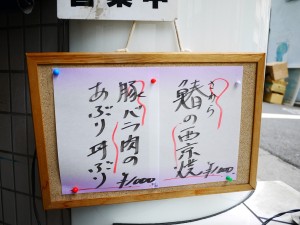 営業中
さわら
鰆の西京焼
¥1,000
豚バラ肉の
あぶり丼ぶり
¥1,000